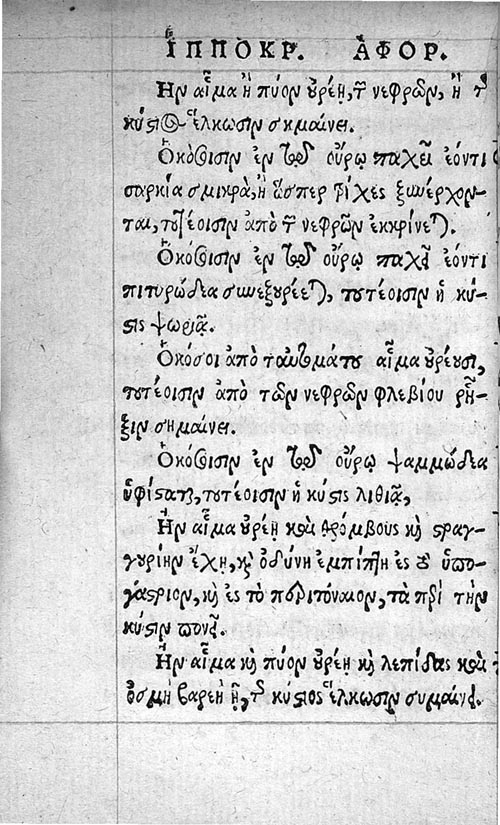 ἹΠΠΟΚΡ. ἈΦΟΡ.
Ἢν αἷμα ἢ πύον οὐρέῃ, τῶν νεφρῶν, ἢ τῆς
κύστιος ἕλκωσιν σημαίνει.
Ὁκόσοισιν ἐν τῷ οὔρῳ παχεῖ ἐόντι
σαρκία σμικρὰ, ἢ ὥσπερ τρίχες ξυνέρχον-
ται, τουτέοισιν ἀπὸ τῶν νεφρῶν ἐκκρίνεται.
Ὁκόσοισιν ἐν τῷ οὔρῳ παχεῖ ἐόντι
πιτυρώδεα συνεξουρέεται, τουτέοισιν ἡ κύ-
στις ψωριᾷ.
Ὁκόσοι ἀπὸ ταυτομάτου αἷμα οὐρέουσι,
τουτέοισιν ἀπὸ τῶν νεφρῶν φλεβίου ῥῆ-
ξιν σημαίνει.
Ὁκόσοισιν ἐν τῷ οὔρῳ ψαμμώδεα
ὑφίσταται, τουτέοισιν ἡ κύστις λιθιᾷ,
Ἢν αἷμα οὐρέῃ καὶ θρόμβους καὶ στραγ-
γουρίην ἔχῃ, καὶ ὀδύνη ἐμπίπτῃ ἐς τὸ ὑπο-
γάστριον, καὶ ἐς τὸ περιτόναιον, τὰ περὶ τὴν
κύστιν πονεῖ.
Ἢν αἷμα καὶ πύον οὐρέῃ καὶ λεπίδας καὶ
ὀσμὴ βαρέη ᾖ, τῆς κύστιος ἕλκωσιν συμαίνει.